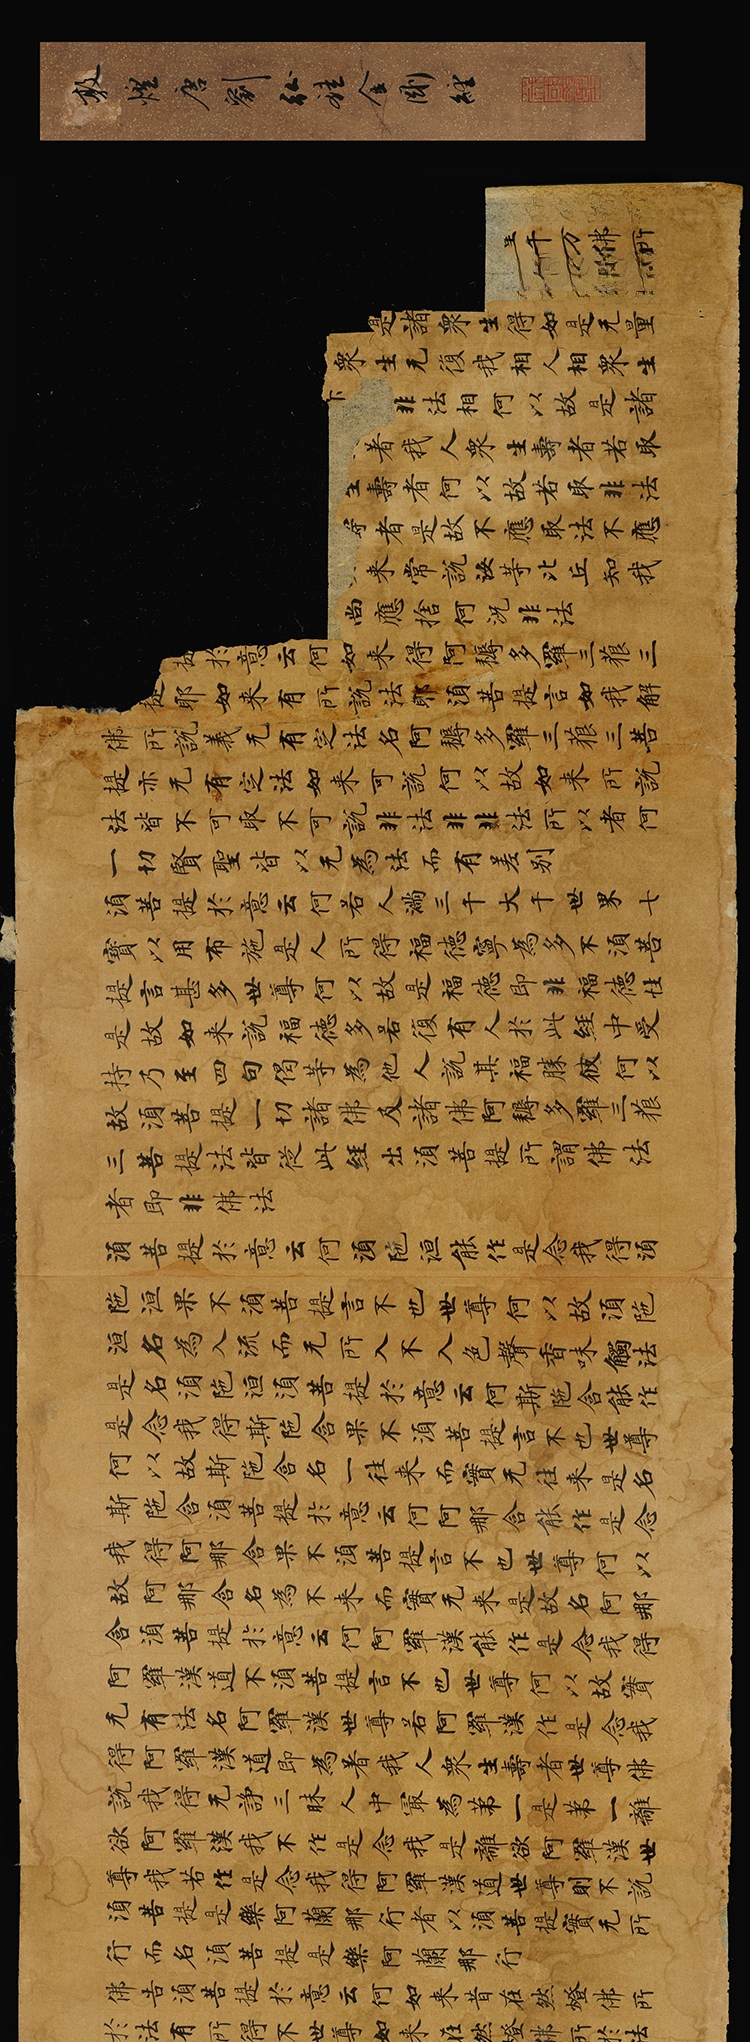 敦煌唐劉弘珪金剛經
千万佛所
是諸衆生得如是无量
衆生无復我相人相衆生
非法相何以故是諸
著我人衆生壽者若取
生壽者何以故若取非法
者是故不應取法不應
来常說汝等比丘知我
尚應捨何況非法
提於意云何如来得阿耨多羅三藐三
提耶如来有所說法耶須菩提言如我解
佛所說義无有定法名阿耨多羅三藐三菩
提亦无有定法如来可說何以故如来所說
法皆不可取不可說非法非非法所以者何
一切賢聖皆以无為法而有差别
須菩提於意云何若人滿三千大千世界七
寶以用布施是人所得福德寧為多不須菩
提言甚多世尊何以故是福德即非福德性
是故如来說福德多若復有人於此經中受
持乃至四句偈等為他人說其福勝彼何以
故須菩提一切諸佛及諸佛阿耨多羅三藐
三菩提法皆從此經出須菩提所謂佛法
者即非佛法
須菩提於意云何須陁洹能作是念我得須
陁洹果不須菩提言不也世尊何以故須陁
洹名為入流而无所入不入色聲香味觸法
是名須陁洹須菩提於意云何斯陁含能作
是念我得斯陁含果不須菩提言不也世尊
何以故斯陁含名一往来而實无往来是名
斯陁含須菩提於意云何阿那含能作是念
我得阿那含果不須菩提言不也世尊何以
故阿那含名為不来而實无来是故名阿那
含須菩提於意云何阿羅漢能作是念我得
阿羅漢道不須菩提言不也世尊何以故實
无有法名阿羅漢世尊若阿羅漢作是念我
得阿羅漢道即為著我人衆生壽者世尊佛
說我得无諍三昧人中最為第一是第一離
欲阿羅漢我不作是念我是離欲阿羅漢世
尊我若作是念我得阿羅漢道世尊則不說
須菩提是樂阿蘭那行者以須菩提實无所
行而名須菩提是樂阿蘭那行
佛告須菩提於意云何如来昔在然燈佛所
於法有所得不世尊如来在然燈佛所於法